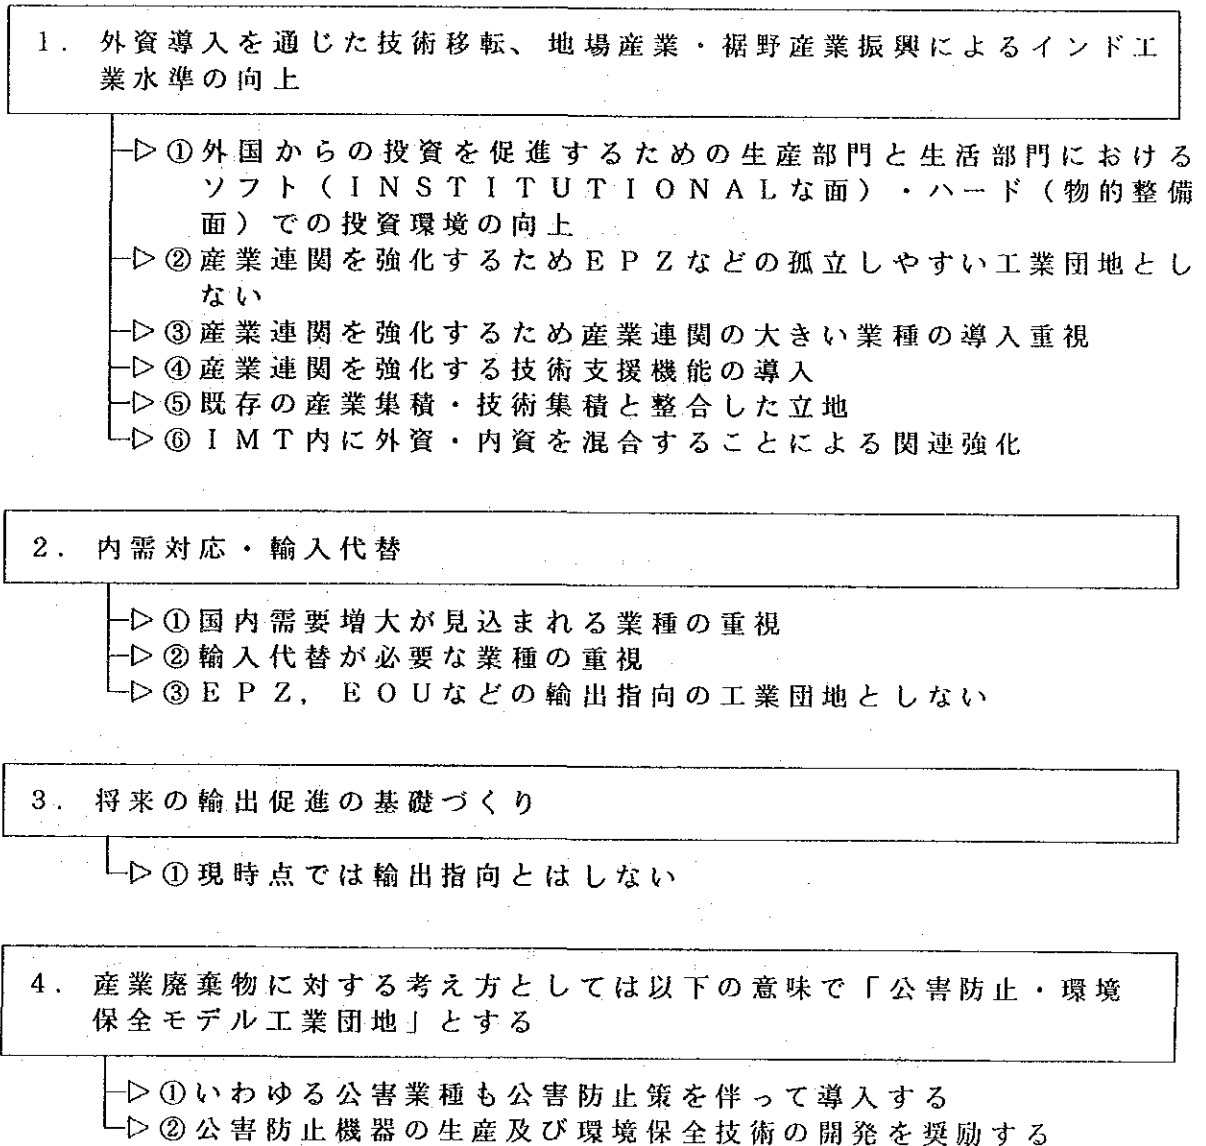 1. 外資導入を通じた技術移転、地場産業・裾野産業振興によるインド工
業水準の向上
①外国からの投資を促進するための生産部門と生活部門における
ソフト（INSTITUTIONALな面）・ハード（物的整備
面）での投資環境の向上
②産業連関を強化するためEPZなどの孤立しやすい工業団地とし
ない
③産業連関を強化するため産業連関の大きい業種の導入重視
④産業連関を強化する技術支援機能の導入
⑤既存の産業集積・技術集積と整合した立地
⑥IMT内に外資・内資を混合することによる関連強化
2. 内需対応・輸入代替
①国内需要増大が見込まれる業種の重視
②輸入代替が必要な業種の重視
③EPZ, EOUなどの輸出指向の工業団地としない
3. 将来の輸出促進の基礎づくり
①現時点では輸出指向とはしない
4. 産業廃棄物に対する考え方としては以下の意味で「公害防止・環境
保全モデル工業団地」とする
①いわゆる公害業種も公害防止策を伴って導入する
②公害防止機器の生産及び環境保全技術の開発を奨励する